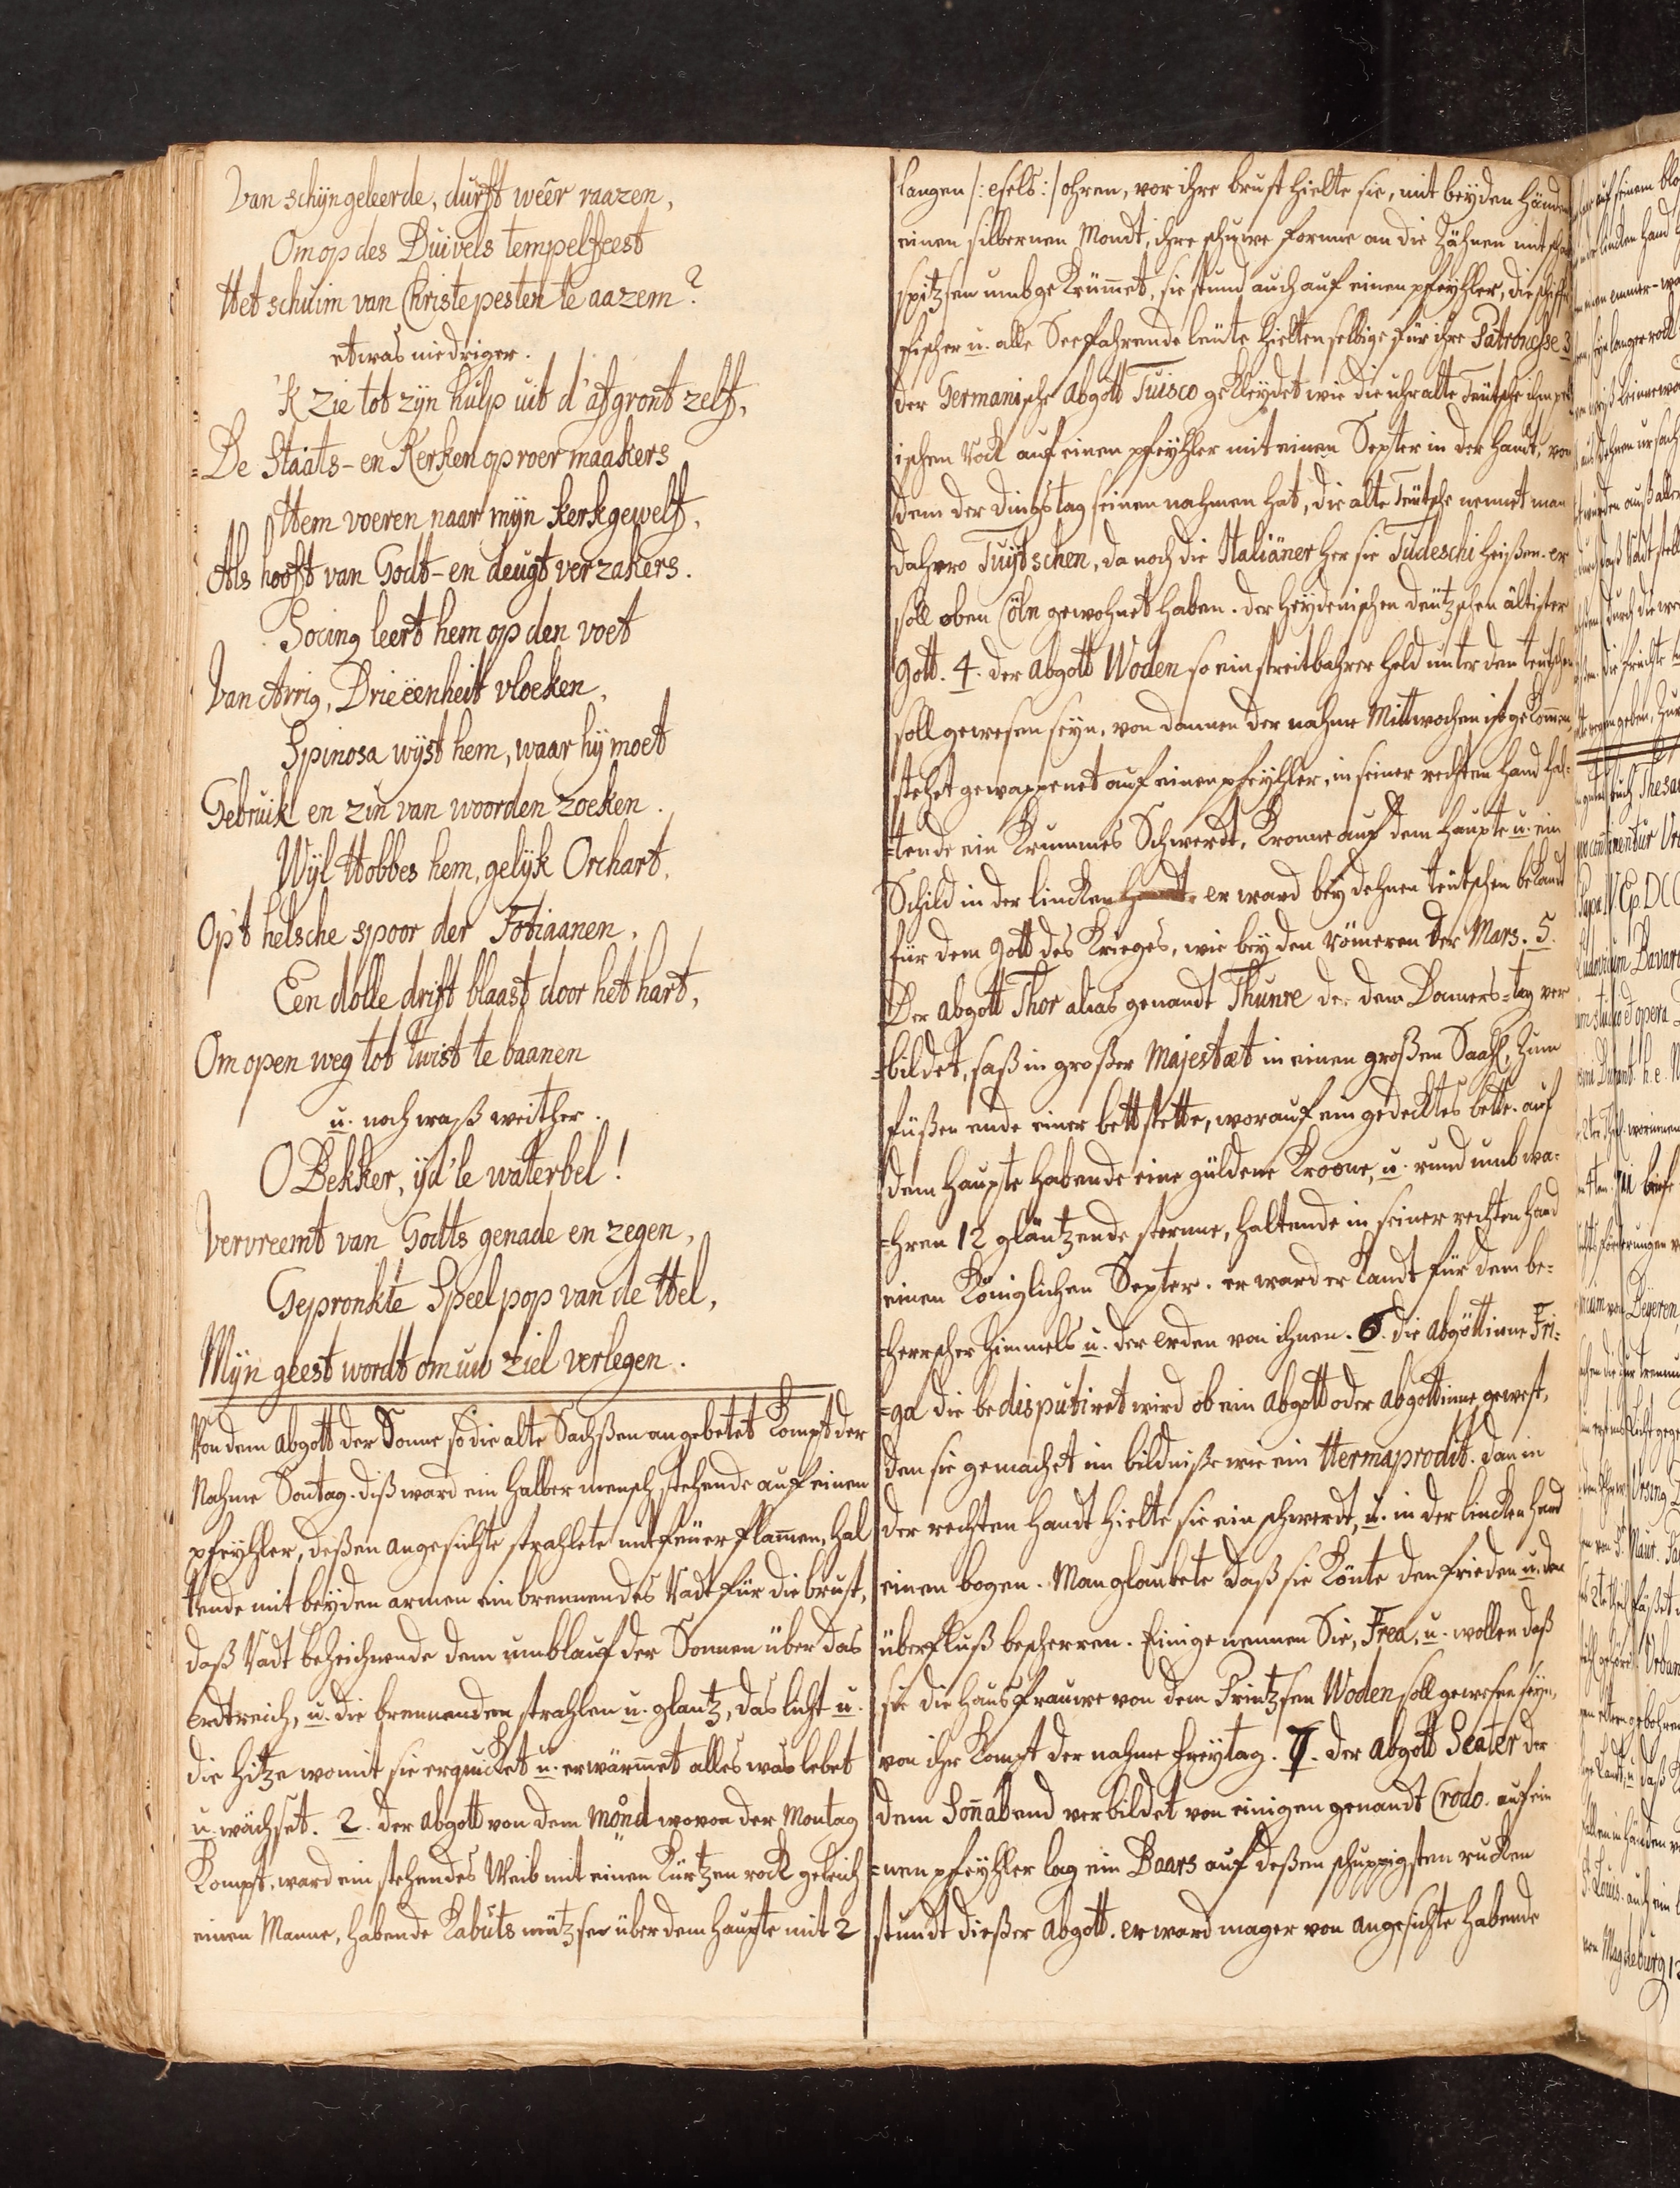 Van schijngeleerde, durft weêr raazen,
Om op des Duivels tempelfeest
Het schuim van Christepesten te aazem?
etwas niedriger.
'K zie tot zijn hulp uit d'afgront zelf,
De Staats- en Kerken oproermaakers
Hem voeren naar mijn kerkgewelf,
Als hooft van Godt- en deugt verzakers.
Socing leert hem op den voet
Van Arrig, Drieëenheit vloeken,
Spinosa wijst hem, waar hij moet
Gebruik en zin van woorden zoeken.
Wijl Hobbes hem, gelijk Orchart,
Op't helsche spoor der Fotiaanen,
Een dolle drift blaast door het hart,
Om open weg tot twist te baanen
u. noch waß weither.
O Bekker, ijd'le waterbel!
Vervreemt van Godts genade en zegen,
Gepronkte Speelpop van de Hel,
Mijn geest wordt om uw ziel verlegen.
Von dem abgott der Sonne so die alte Sachßen angebetet kompt der
Nahme Sontag. diß ward ein halber mensch stehende auf einen
pfeyhler, deßen angesichte strahlete mit feuer flamen, hal
tende mit beyden armen ein brennendes Radt für die brust,
daß Radt bezeichnende dem umblauf der Sonnen über das
erdtreich, u. die brennenden strahlen u. glantz, das licht u.
die hitze womit sie erquicket u. erwärmet alles was lebet
u. wächset. 2. der abgott von dem Mond wovon der Montag
kompt, ward ein stehendes Weib mit einen kurtzen rock geleich
einen Manne, habende Kabuts mützsen über dem haupte mit 2
langen /: esels :/ ohren, vor ihre brust hielte sie, mit beyden händen
einen silbernen Mondt, ihre schuwe forme an die Zähnen mit
spitzsen umbgekrümet, sie stund auch auf einen pfeyhler, die schiffer
fischer u. alle Seefahrende leute hielten selbige für ihre Patronesse 3
der Germanische abgott Tuisco gekleydet wie die uhralte Teutsche
ischen rock auf einen pfeyhler mit einen Septer in der handt, von
dem der dinhstag seinen nahmen hat, die alte Teutsche nennet man
dahero Tuijtschen, da noch die Italiäner her sie Tudeschi heißen. er
soll oben Cöln gewohnet haben. der heydenischen deutzschen ältister
Gott. 4. der abgott Woden so ein streitbahrer held unter den teutschen
soll gewesen seyn, von dannen der nahme Mittwochen ist gekomen,
stehet gewappenet auf einen pfeyhler, in seiner rechten hand hal=
=tende ein krummes Schwerdt, Krone auf dem haupte u. ein
Schild in der lincken er ward bey dehnen teutschen bekant
für dem Gott des Krieges, wie bey den Römeren der Mars. 5.
Der abgott Thor alias genandt Thunre der dem Donners=tag ver
=bildet, saß in großer Majestæt in einen großen Saahl, zum
füßen ende einer bettstette, worauf ein gedecktes bette. auf
dem haupte habende eine güldene Kroone, u. rund umb wa=
=hren 12 gläntzende sterne, haltende in seiner rechten hand
einen Königlichen Septer. er ward erkandt für dem be=
=herrscher himmels u. der erden von ihnen. 6. die abgöttinne Fri=
=ga die bedisputiret wird ob ein abgott oder abgottinne gewest,
den sie gemachet im bildniße wie ein Hermaprodit. dan in
der rechten handt hielte sie ein schwerdt, u. in der lincken hand
einen bogen. Man glaubete daß sie könte den frieden u. den
überfluß bescherren. Einige nennen Sie, Frea, u. wollen daß
sie die hausfrauwe von dem Printzsen Woden soll gewesen seyn,
von ihr kompt der nahme freytag. 7. der abgott Seater der
dem Sonabend verbildet von einigen genandt Crodo. auf ein
=nen pfeyhler lag ein Baars auf deßen schuppigsten rucken
stundt dießer abgott. er ward mager von angesichte habende